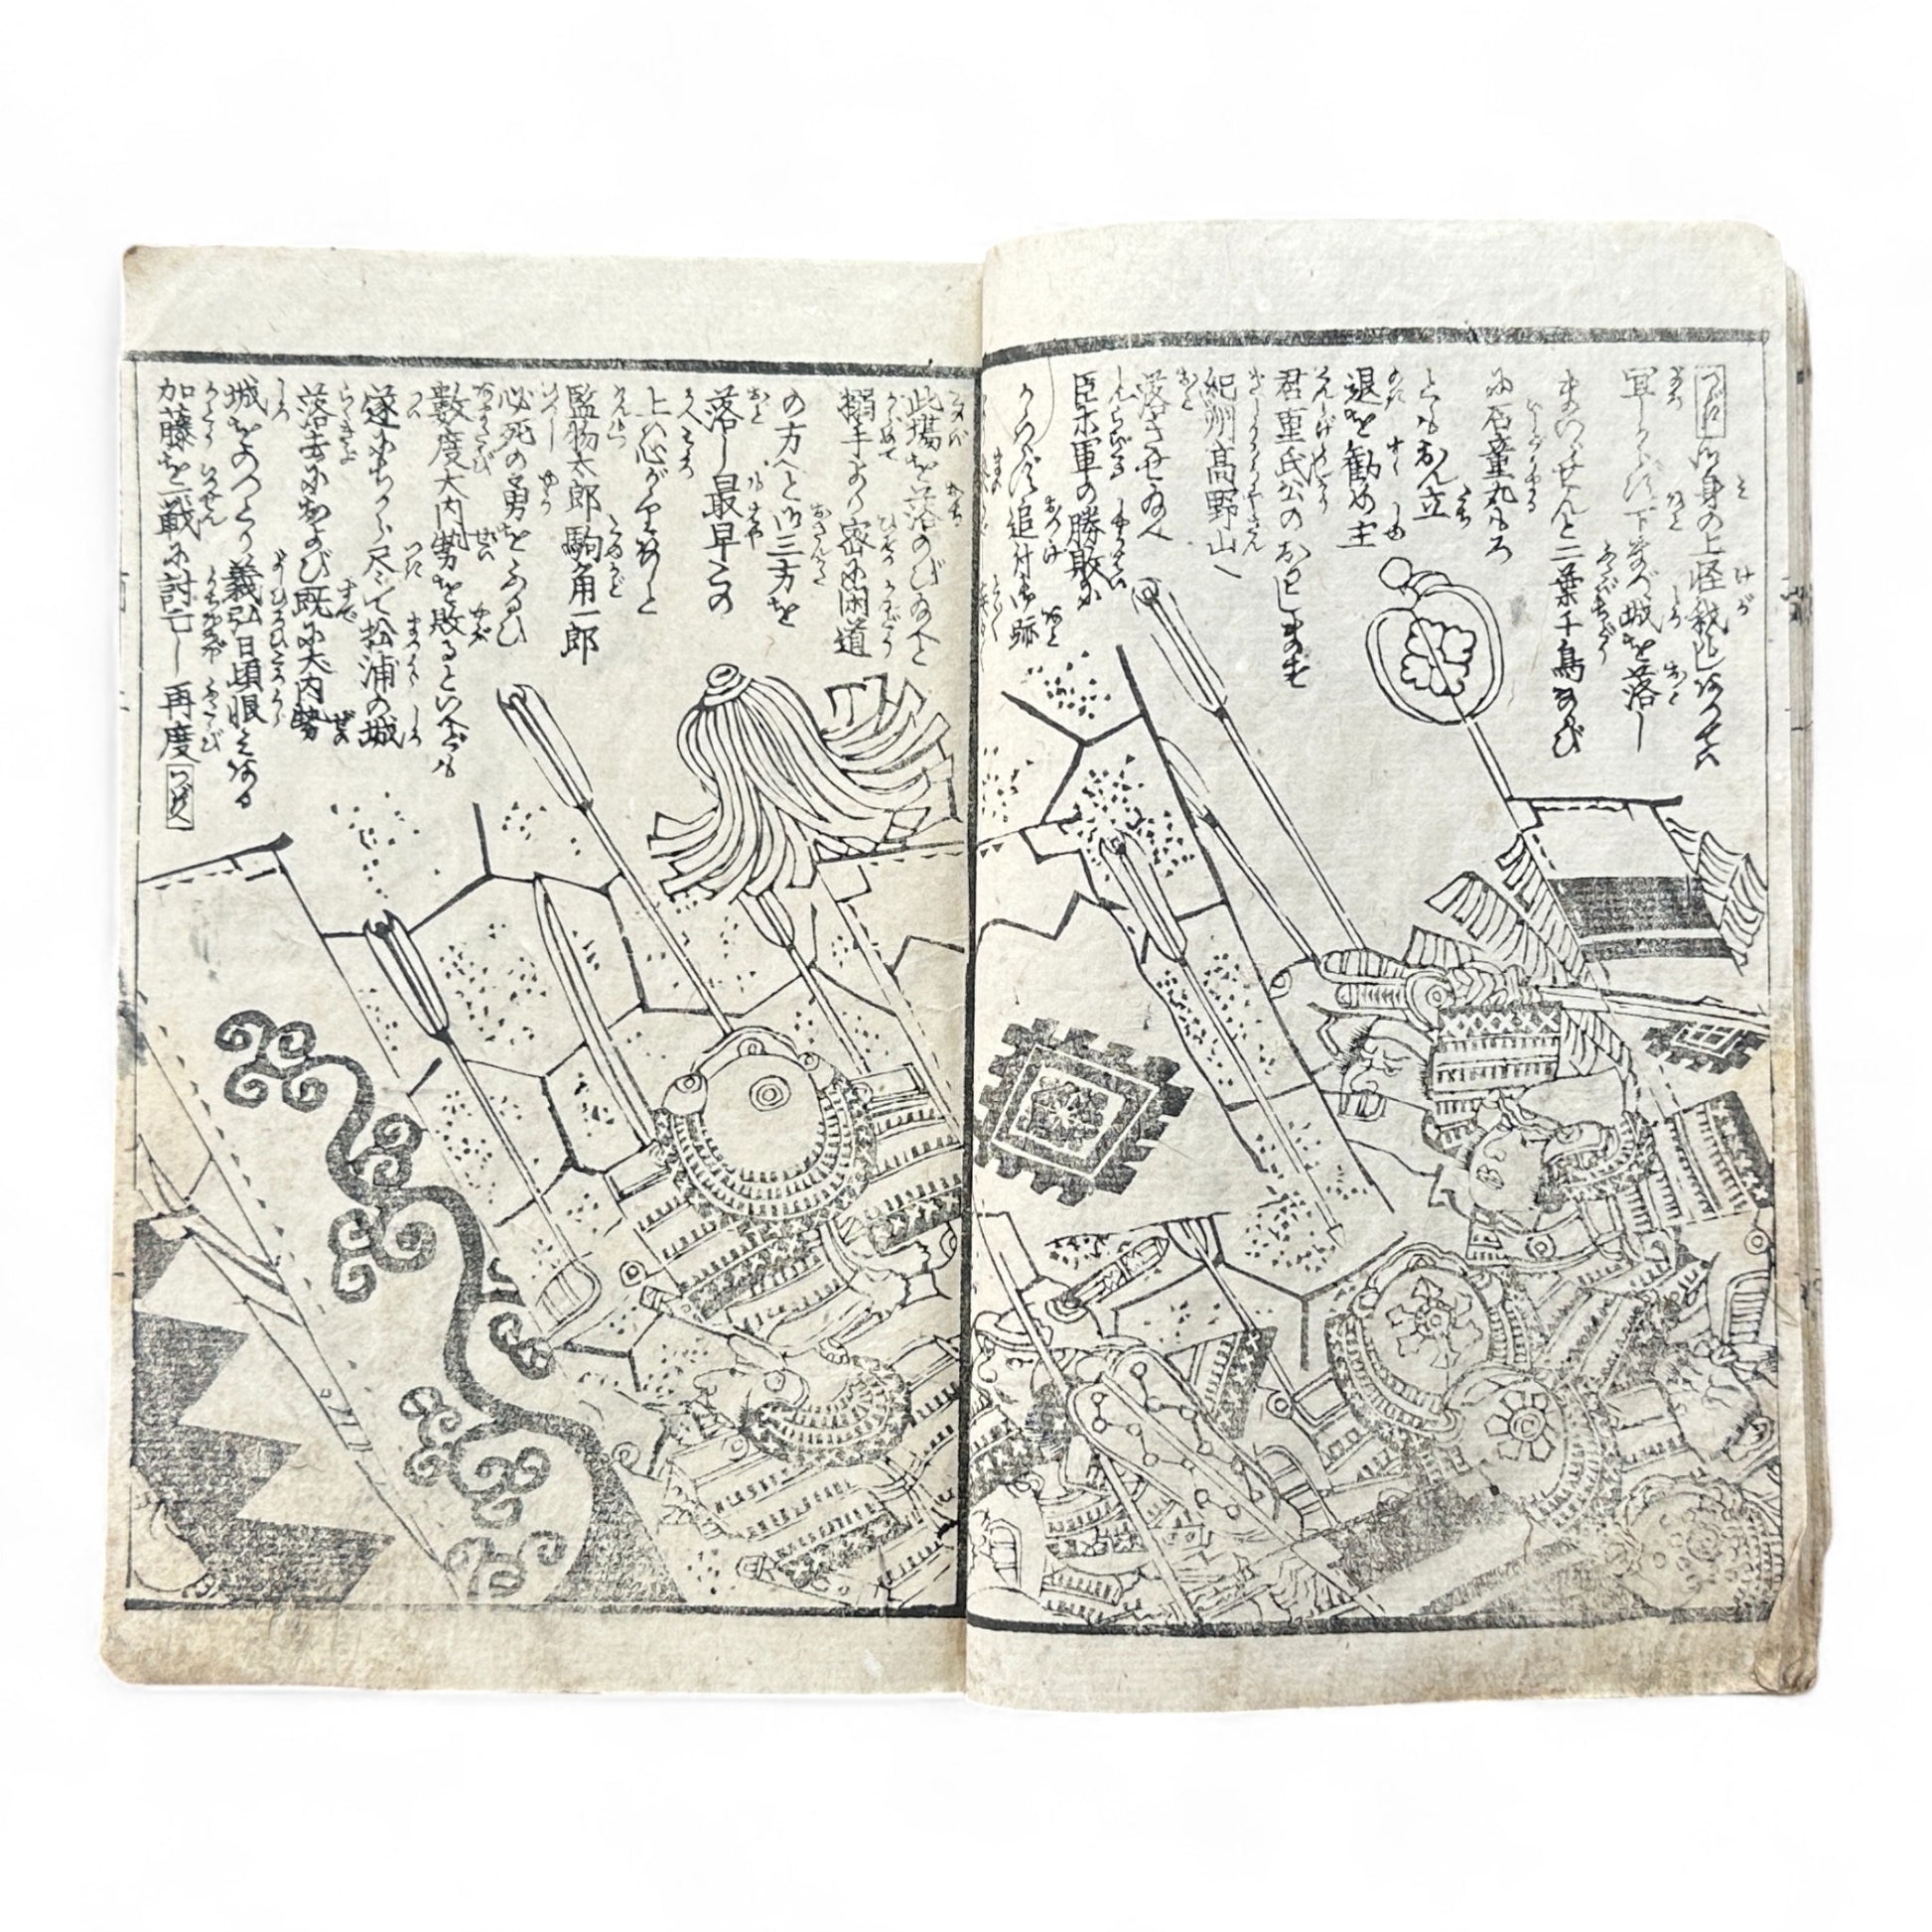 つゞき 御身の上怪我しあつては
宜しからず下某が城を落し
まゐらせんと二葉千鳥及び
に石童丸もろ
ともおん立
退を勧め主
君重氏公のおはします
紀州高野山へ
落させ給へ
臣ホ軍の勝敗に
かゝはらず追付御跡
此場を落のび給へと
搦手より密に間道
の方へと御三方を
落し最早この
上は心がゝりあらじと
監物太郎駒角一郎
必死の勇をふるひ
数度大内勢を敗るといへども
遂にちから尽て松浦の城
落去におよび既に大内勢
城をのつとり義弘日頃眼こある
加藤を一戦に討亡し再度 つゞく